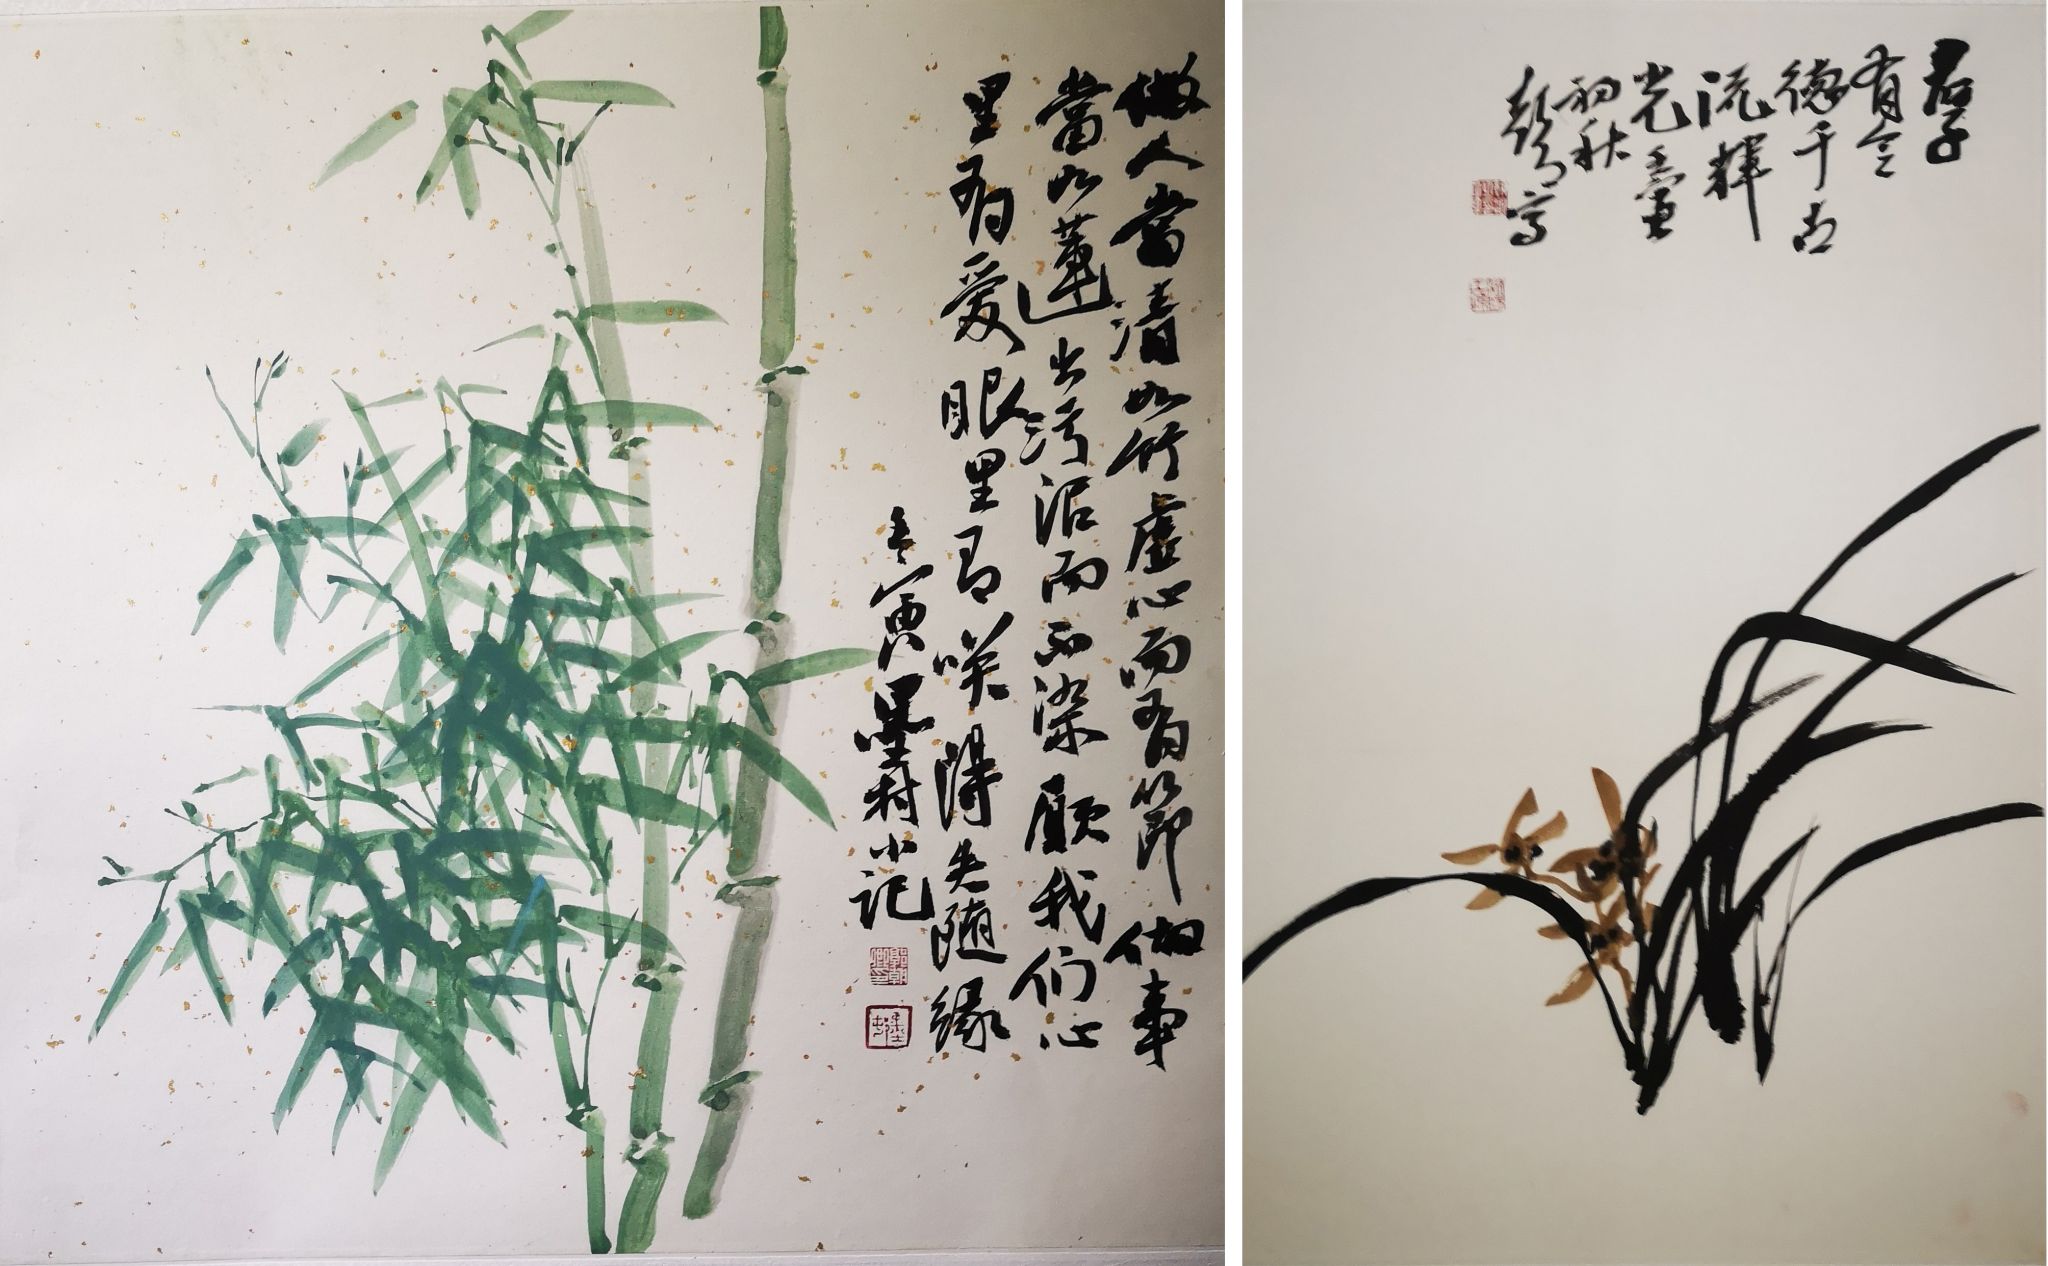 做人當清如竹虛心而有節做事
當如蓮出污泥而不染願我们心
里有爱眼里有笑得失随緣
壬寅墨村小记
君子
有令
德千古
流輝
光壬寅
初秋
寫